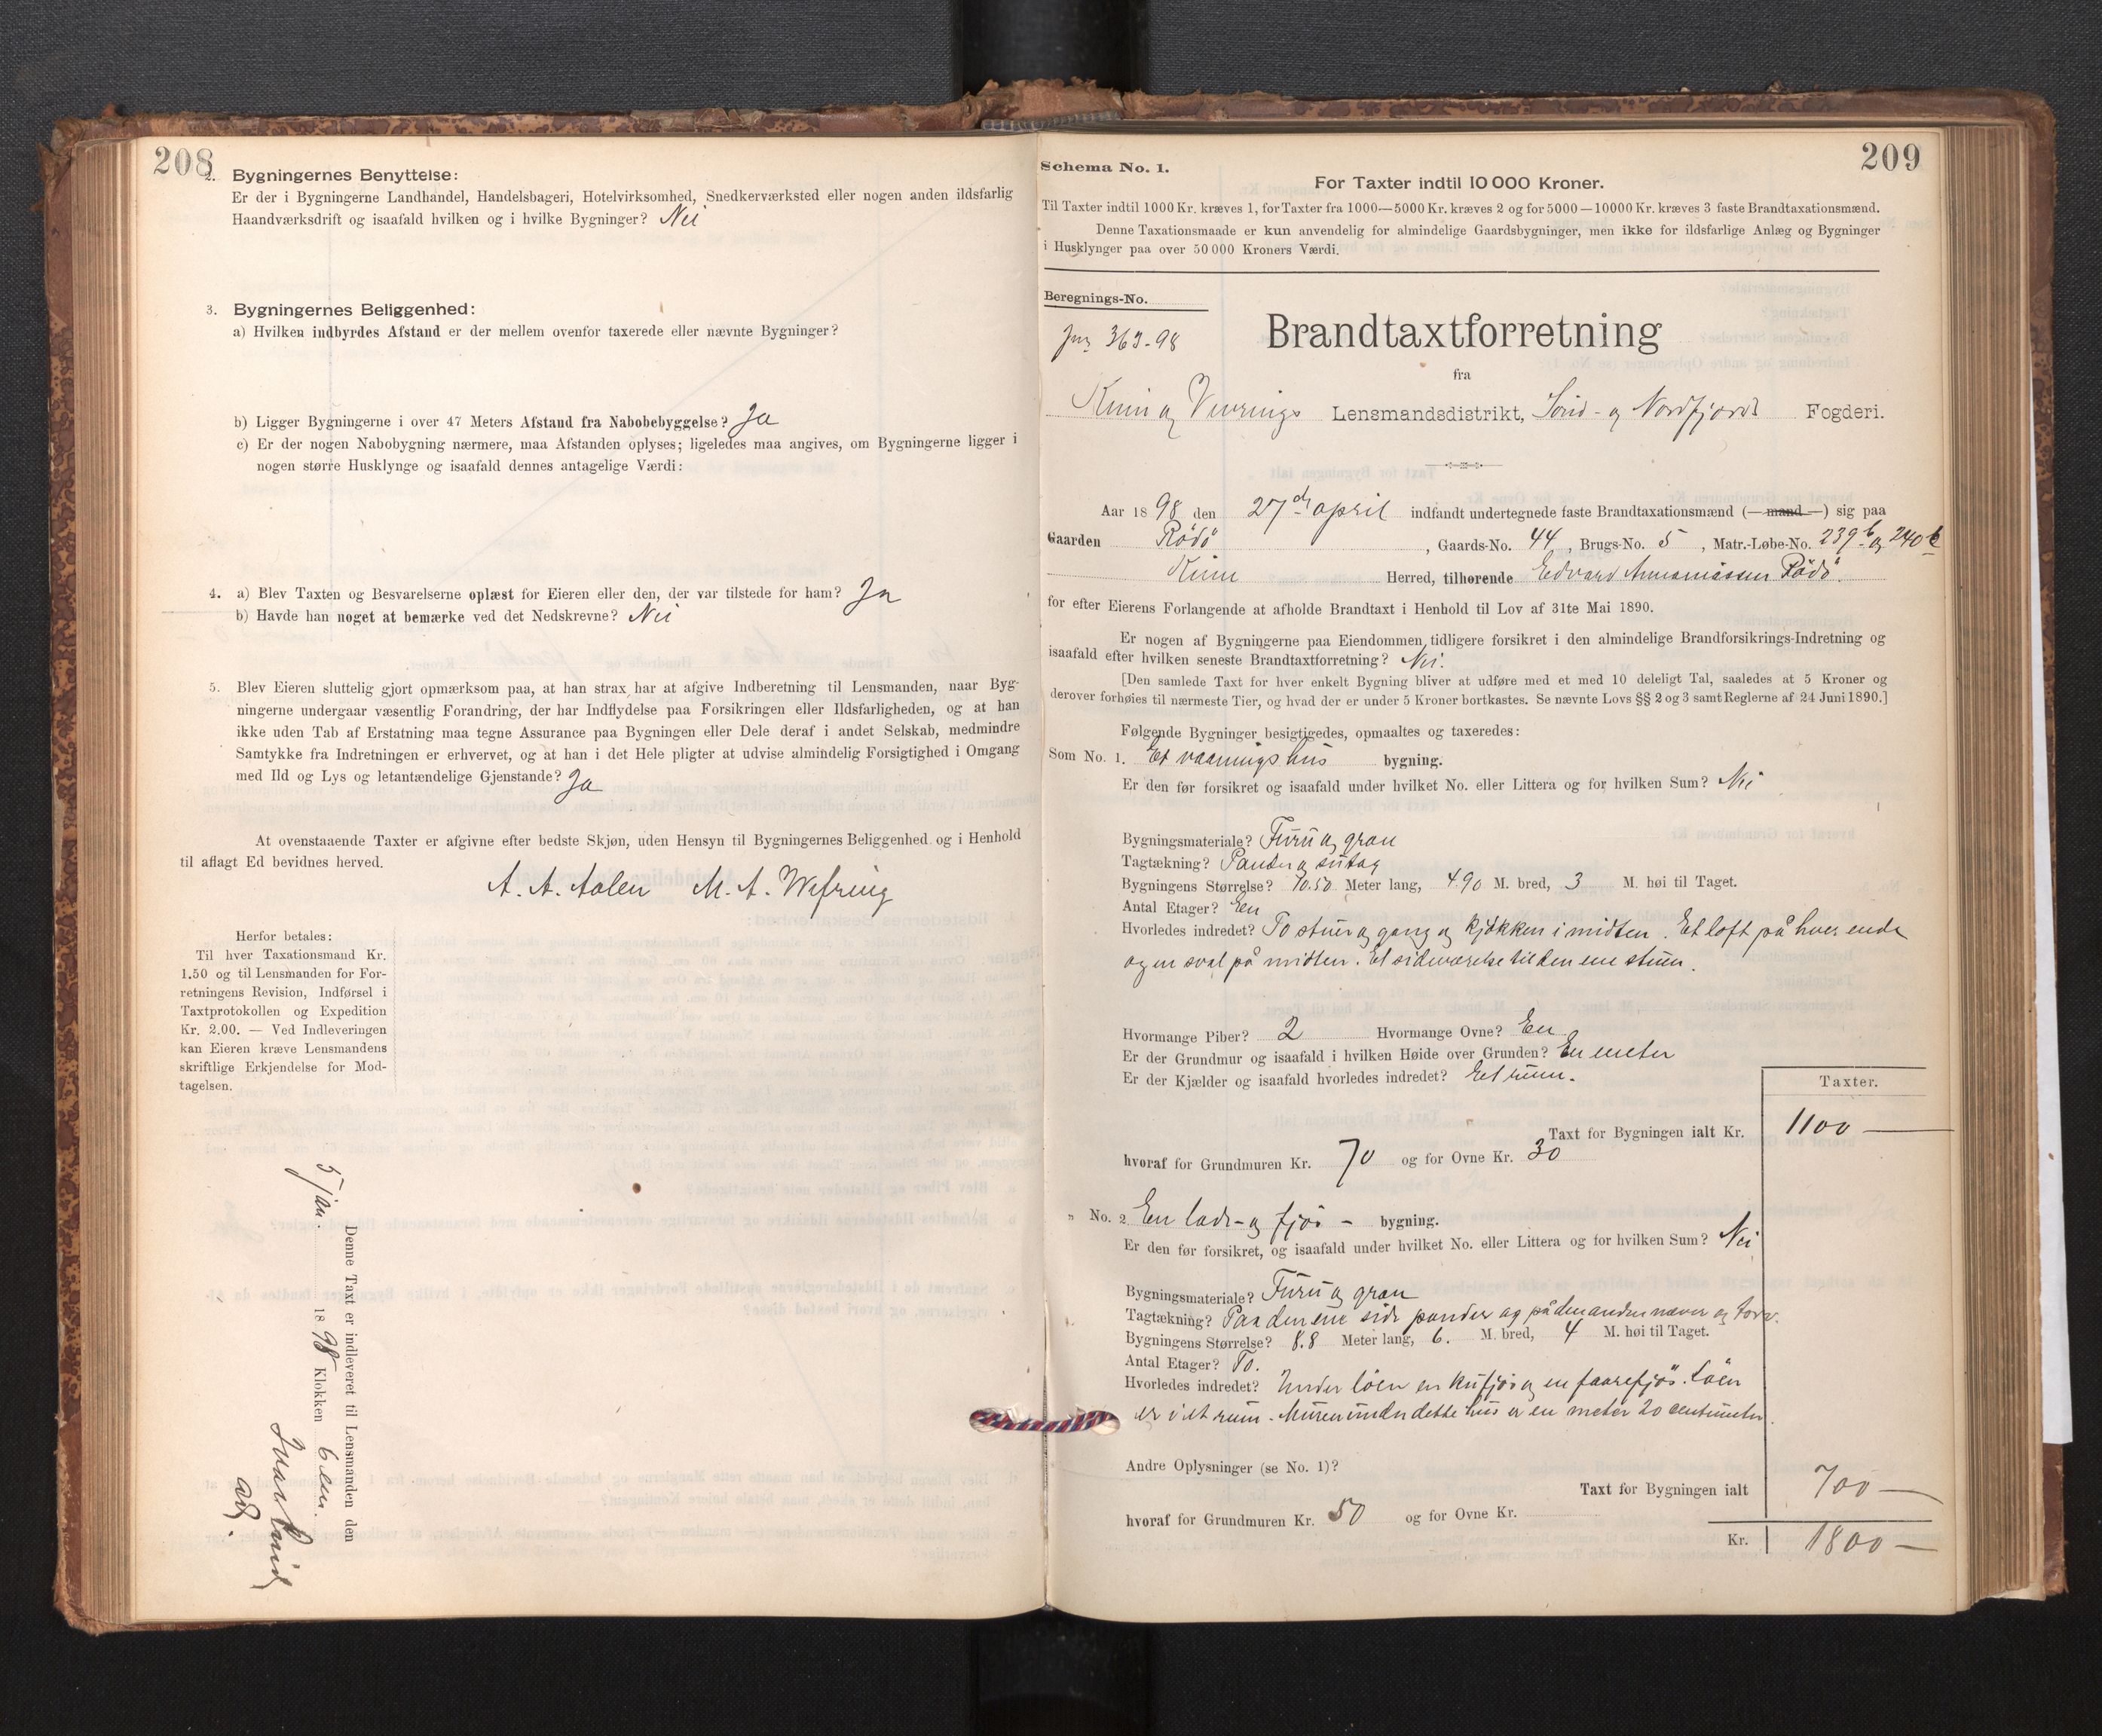 208
2. Bygningernes Benyttelse:
Er der i Bygningerne Landhandel, Handelsbageri, Hotelvirksomhed, Snedkerværksted eller nogen anden ildsfarlig
Haandværksdrift og isaafald hvilken og i hvilke Bygninger? Nei
3. Bygningernes Beliggenhed:
a) Hvilken indbyrdes Afstand er der mellem ovenfor taxerede eller nævnte Bygninger?
b) Ligger Bygningerne i over 47 Meters Afstand fra Nabobebyggelse? Ja
c) Er der nogen Nabobygning nærmere, maa Afstanden oplyses; ligeledes maa angives, om Bygningerne ligger i
nogen større Husklynge og isaafald dennes antagelige Værdi:
4. a) Blev Taxten og Besvarelserne oplæst for Eieren eller den, der var tilstede for ham? Ja
b) Havde han noget at bemærke ved det Nedskrevne? Nei
5. Blev Eieren sluttelig gjort opmærksom paa, at han strax har at afgive Indberetning til Lensmanden, naar Byg-
ningerne undergaar væsentlig Forandring, der har Indflydelse paa Forsikringen eller Ildsfarligheden, og at han
ikke uden Tab af Erstatning maa tegne Assurance paa Bygningen eller Dele deraf i andet Selskab, medmindre
Samtykke fra Indretningen er erhvervet, og at han i det Hele pligter at udvise almindelig Forsigtighed i Omgang
med Ild og Lys og letantændelige Gjenstande? Ja
At ovenstaaende Taxter er afgivne efter bedste Skjøn, uden Hensyn til Bygningernes Beliggenhed og i Henhold
til aflagt Ed bevidnes herved.
A. A. Aalen M. A. Wefring
Herfor betales:
Til hver Taxationsmand Kr.
1.50 og til Lensmanden for For-
retningens Revision, Indførsel i
Taxtprotokollen og Expedition
Kr. 2.00. — Ved Indleveringen
kan Eieren kræve Lensmandens
skriftlige Erkjendelse for Mod-
tagelsen.
Denne Taxt er indleveret til Lensmanden den
5 jan. 1898 Klokken 6 em.
209
Schema No. 1.
For Taxter indtil 10 000 Kroner.
Til Taxter indtil 1000 Kr. kræves 1, for Taxter fra 1000—5000 Kr. kræves 2 og for 5000—10000 Kr. kræves 3 faste Brandtaxationsmænd.
Denne Taxationsmaade er kun anvendelig for almindelige Gaardsbygninger, men ikke for ildsfarlige Anlæg og Bygninger
i Husklynger paa over 50 000 Kroners Værdi.
Beregnings-No.
Jnr 363-98
Brandtaxtforretning
fra
Kinn og Vevrings Lensmandsdistrikt, Sønd- og Nordfjords Fogderi.
Aar 1898 den 27de april indfandt undertegnede faste Brandtaxationsmænd (—mand—) sig paa
Gaarden Rödö, Gaards-No. 44, Brugs-No. 5, Matr.-Løbe-No. 239b og 240b
Kinn Herred, tilhørende Edvard Annaniassen Rödö.
for efter Eierens Forlangende at afholde Brandtaxt i Henhold til Lov af 31te Mai 1890.
Er nogen af Bygningerne paa Eiendommen tidligere forsikret i den almindelige Brandforsikrings-Indretning og
isaafald efter hvilken seneste Brandtaxtforretning? Nei.
[Den samlede Taxt for hver enkelt Bygning bliver at udføre med et med 10 deleligt Tal, saaledes at 5 Kroner og
derover forhøies til nærmeste Tier, og hvad der er under 5 Kroner bortkastes. Se nævnte Lovs §§ 2 og 3 samt Reglerne af 24 Juni 1890.]
Følgende Bygninger besigtigedes, opmaaltes og taxeredes:
Som No. 1. Et vaaningshus bygning.
Er den før forsikret og isaafald under hvilket No. eller Littera og for hvilken Sum? Nei
Bygningsmateriale? Furu og gran
Tagtækning? Pander og sutag
Bygningens Størrelse? 10.50 Meter lang, 4.90 M. bred, 3 M. høi til Taget.
Antal Etager? Een
Hvorledes indredet? To stuer og gang og kjökken i midten. Et loft på hver ende
og en sval på midten. Et sideværelse til den ene stuen.
Hvormange Piber? 2 Hvormange Ovne? En
Er der Grundmur og isaafald i hvilken Høide over Grunden? En meter
Er der Kjælder og isaafald hvorledes indredet? Eet rum.
Taxter.
Taxt for Bygningen ialt Kr. 1100 —
hvoraf for Grundmuren Kr. 70 og for Ovne Kr. 30
„ No. 2 En lade- og fjös - bygning.
Er den før forsikret, og isaafald under hvilket No. eller Littera og for hvilken Sum? Nei
Bygningsmateriale? Furu og gran
Tagtækning? Paa den ene side pander og på den anden næver og torv.
Bygningens Størrelse? 8.8 Meter lang, 6. M. bred, 4 M. høi til Taget.
Antal Etager? To.
Hvorledes indredet? Under löen en kufjös og en faarefjös. Löen
er i et rum. Muren under dette hus er en meter 20 centimeter.
Andre Oplysninger (se No. 1)?
Taxt for Bygningen ialt 700 —
hvoraf for Grundmuren Kr. 50 og for Ovne Kr.
Kr. 1800 —